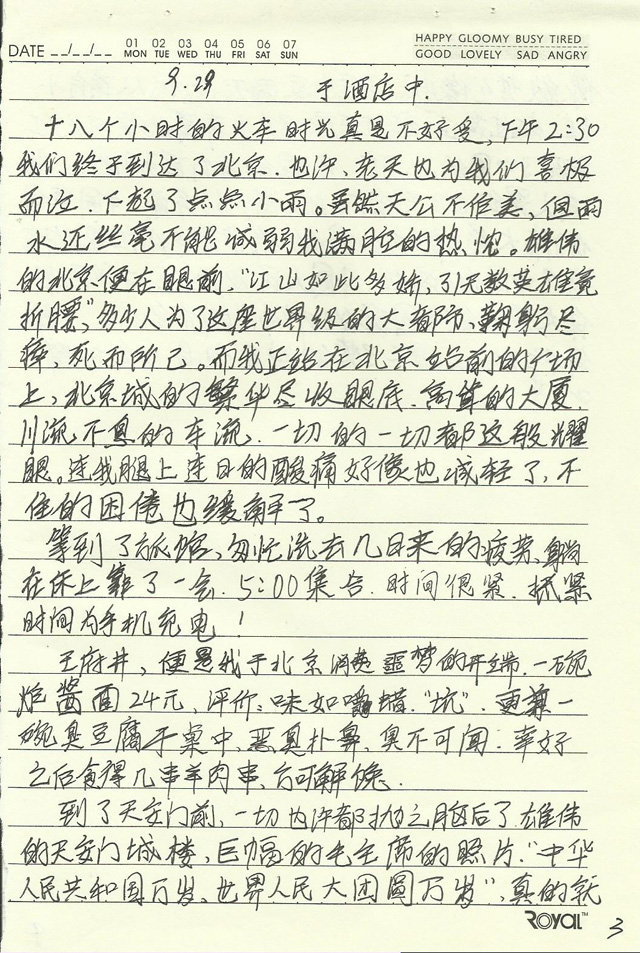 DATE __/__/__ 01 MON 02 TUE 03 WED 04 THU 05 FRI 06 SAT 07 SUN HAPPY GLOOMY BUSY TIRED
GOOD LOVELY SAD ANGRY
9.29 于酒店中.
十八个小时的火车时光真是不好受,下午2:30
我们终于到达了北京.也许,老天也为我们喜极
而泣.下起了点点小雨。虽然天公不作美,但雨
水还丝毫不能减弱我满腔的热忱。雄伟
的北京便在眼前,"江山如此多娇,引无数英雄竞
折腰",多少人为了这座世界级的大都市,鞠躬尽
瘁,死而所已。而我正站在北京站前的广场
上,北京城的繁华尽收眼底.高耸的大厦.
川流不息的车流.一切的一切都这般耀
眼。连我腿上连日的酸痛好像也减轻了,不
住的困倦也缓解了。
等到了旅馆,匆忙洗去几日来的疲劳,躺
在床上靠了一会.5:00集合.时间很紧.抓紧
时间为手机充电!
王府井,便是我于北京消费噩梦的开端.一碗
炸酱面24元,评价:味如嚼蜡."坑".更兼一
碗臭豆腐于桌中,恶臭扑鼻,臭不可闻.幸好
之后食得几串羊肉串,方可解馋.
到了天安门前,一切也许都抛之脑后了.雄伟
的天安门城楼,巨幅的毛主席的照片."中华
人民共和国万岁,世界人民大团圆万岁",真的就
ROYAL™
3